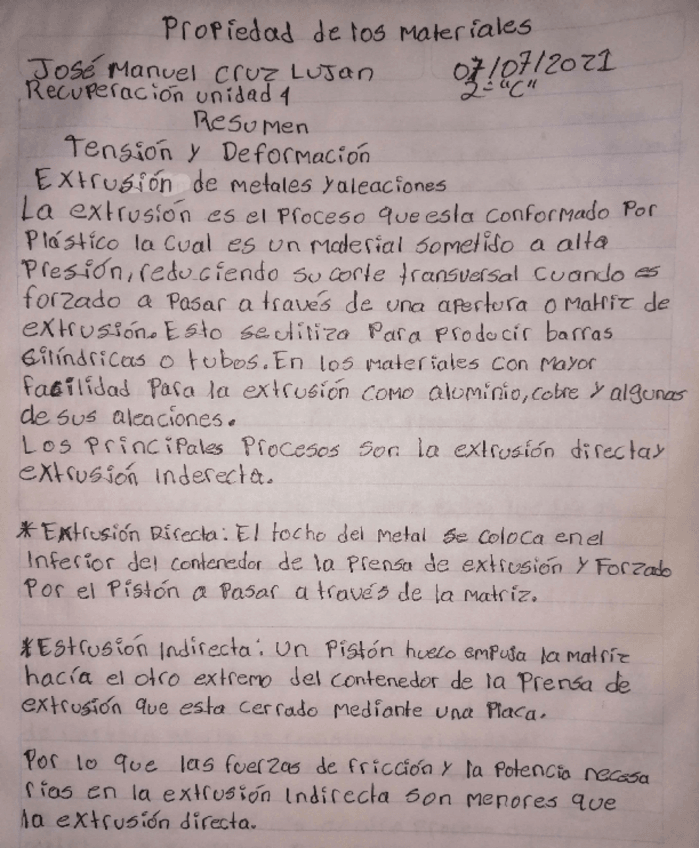 Propiedad de los materiales
José Manuel Cruz Lujan 07/07/2021
Recuperación unidad 4 2-"C"
Resumen
Tensión y Deformación
Extrusión de metales y aleaciones
La extrusión es el Proceso que esta conformado Por
Plástico la cual es un material sometido a alta
Presión, reduciendo su corte transversal cuando es
forzado a Pasar a través de una apertura o Matriz de
extrusión. Esto se utiliza Para Producir barras
cilíndricas o tubos. En los materiales con mayor
facilidad Para la extrusión como aluminio, cobre y algunas
de sus aleaciones.
Los Principales Procesos son la extrusión directa y
extrusión inderecta.
*Extrusión Directa: El tocho del metal se coloca en el
Inferior del contenedor de la Prensa de extrusión y Forzado
Por el Pistón a Pasar a través de la Matriz.
*Estrusión Indirecta: Un Pistón hueco empuja la matriz
hacía el otro extremo del contenedor de la Prensa de
extrusión que esta cerrado mediante una Placa.
Por lo que las fuerzas de fricción y la Potencia necesa
rias en la extrusión Indirecta son menores que
la extrusión directa.